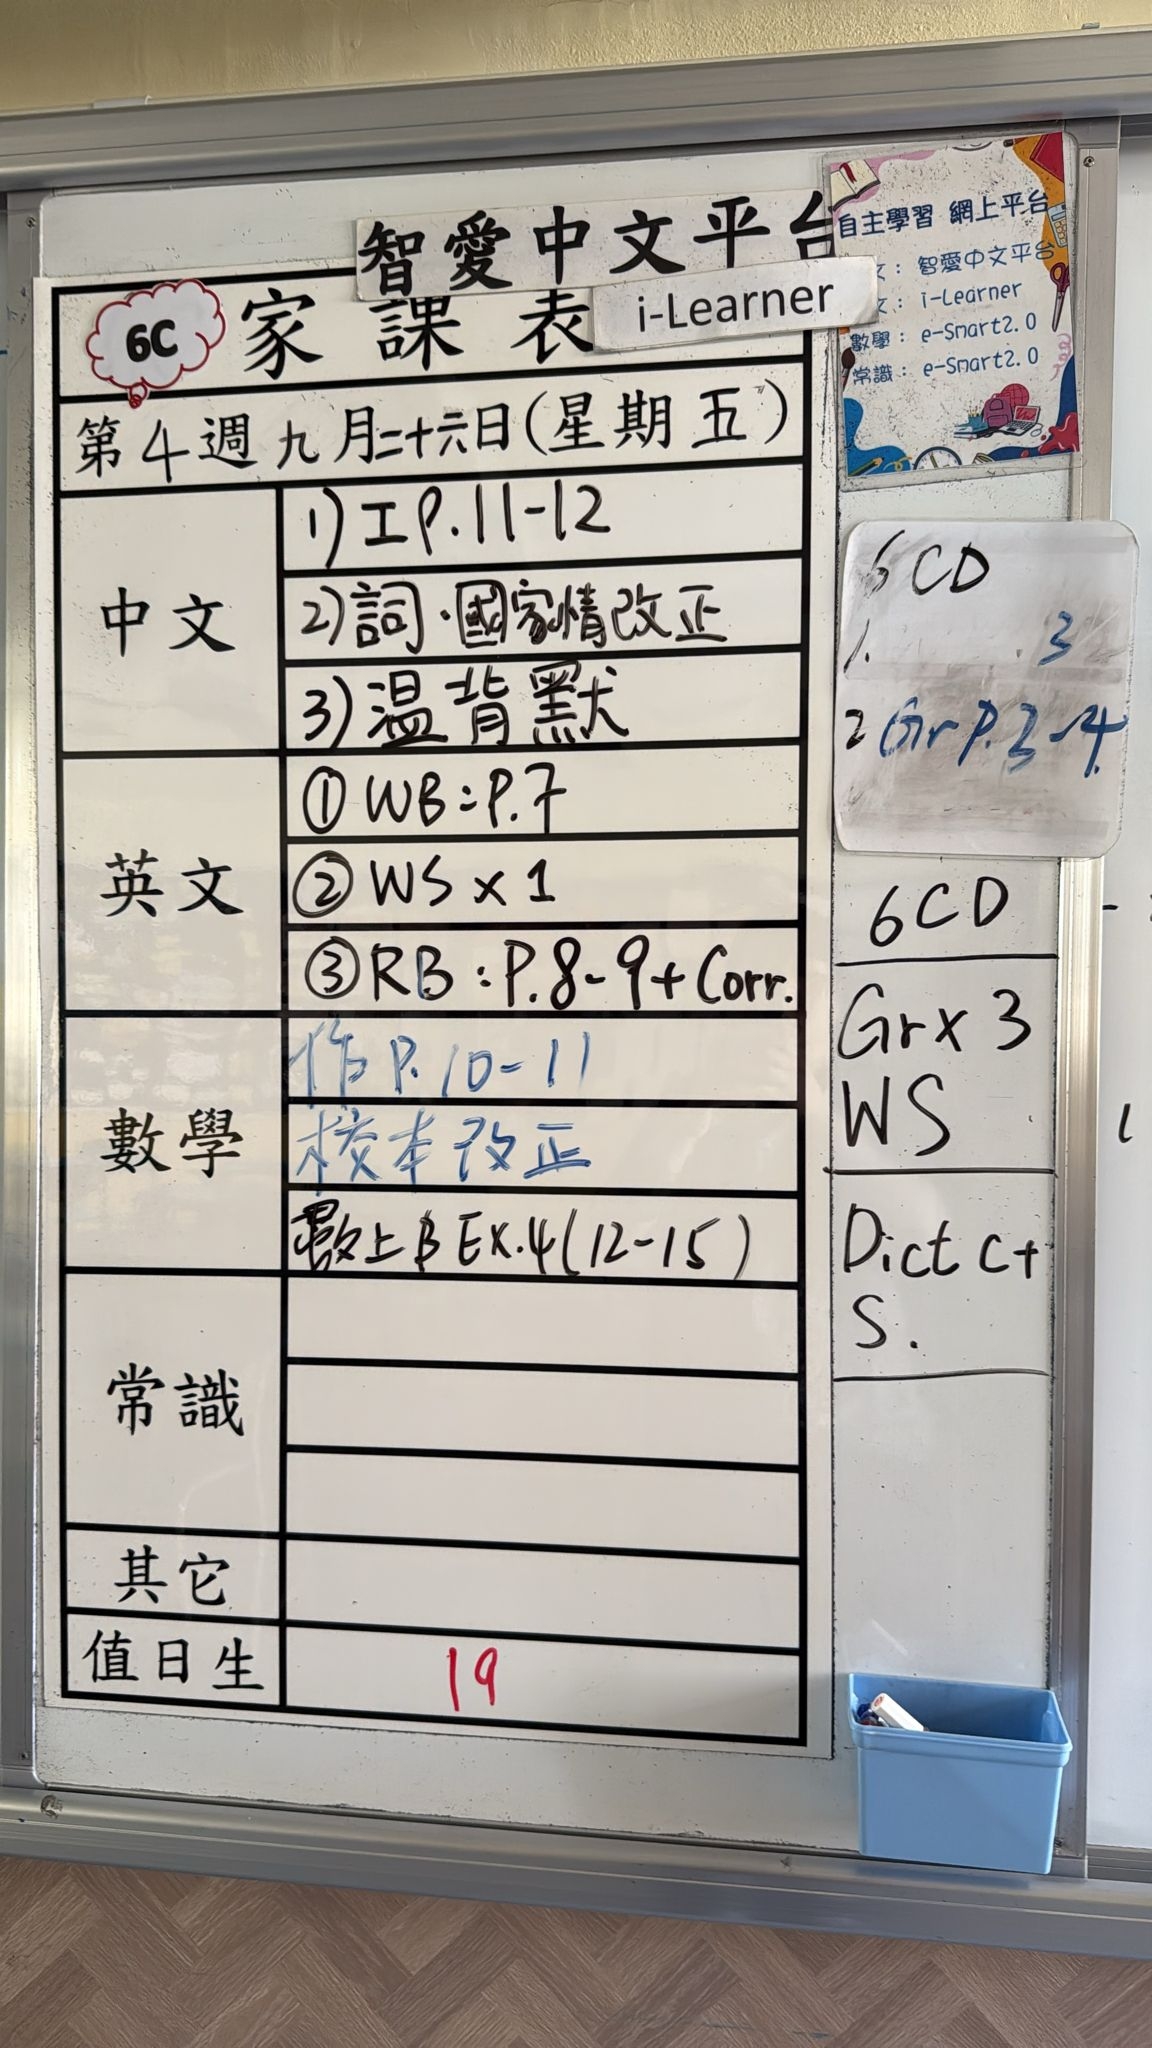 智愛中文平台
i-Learner
6C
家課表
第4週九月二十六日(星期五)
中文
1)工P.11-12
2)詞.國家情改正
3)溫背默
英文
①WB:P.7
②WS x 1
③RB:P.8-9+Corr.
數學
作P.10-11
校本改正
數上B Ex.4(12-15)
常識
其它
值日生
19
自主學習 網上平台
文: 智愛中文平台
文: i-Learner
數學: e-Smart2.0
常識: e-Smart2.0
6CD
1. 3
2 Gr P.3-4
6CD
Gr x 3
WS
Dict C+
S.